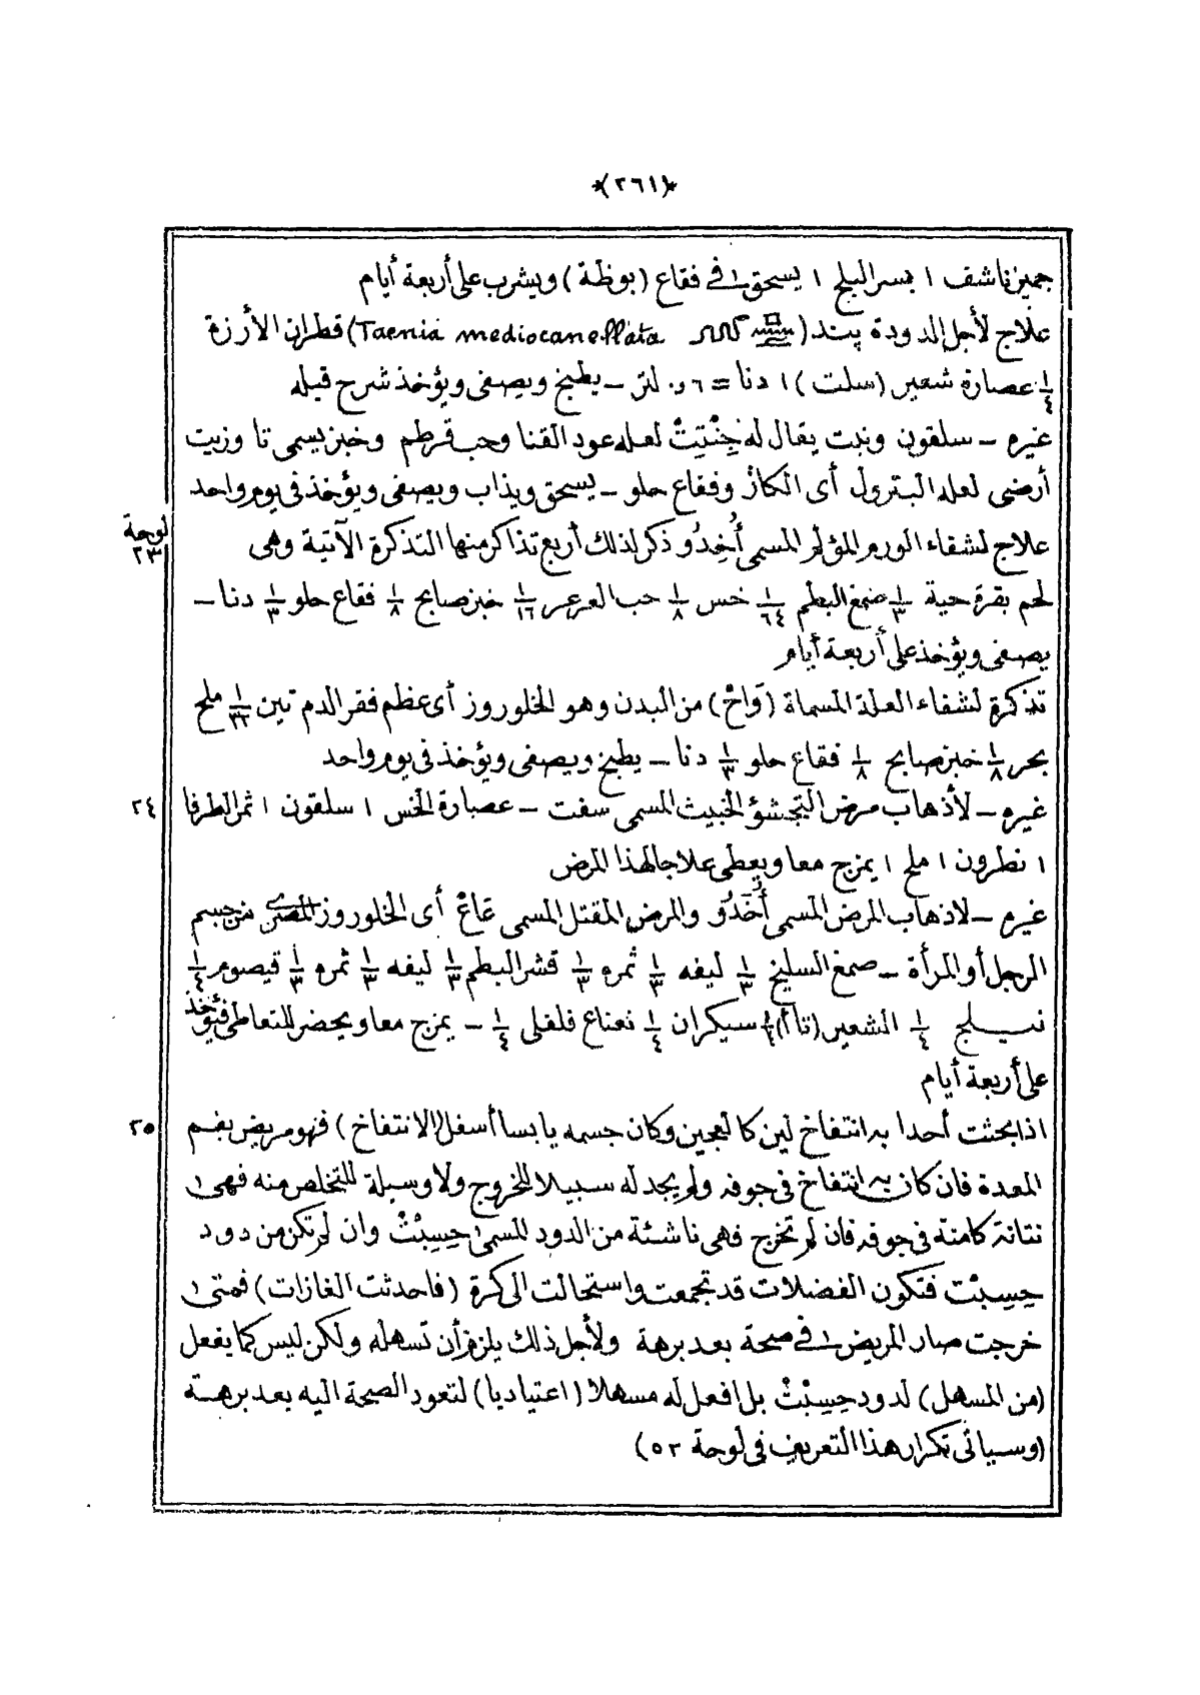 *(٢٦١)*
جميز ناشف ١ بسر البلح ١ يسحق في فقاع (بوظة) ويشرب على أربعة أيام
علاج لأجل الدودة پند (Taenia mediocanellata) قطران الأرزة
١/٤ عصارة شعير (سلت) ١ دنا = ٠٫٦ لتر ــ يطبخ ويصفى ويؤخذ شرح قبله
غيره ــ سلقون ونبت يقال له جِنْتِتْ لعله عود القنا وحب قرطم وخبز يسمى تا وزيت
أرضى لعله البترول أى الكاز وفقاع حلو ــ يسحق ويذاب ويصفى ويؤخذ فى يوم واحد
لوحة ٢٣
علاج لشفاء الورم المؤلم المسمى أُخِدُو ذكر لذلك أربع تذاكر منها التذكرة الآتية وهى
لحم بقرة حية ١/٣ صمغ البطم ١/٦٤ خس ١/٨ حب العرعر ١/١٦ خبز صابح ١/٨ فقاع حلو ١/٣ دنا ــ
يصفى ويؤخذ على أربعة أيام
تذكرة لشفاء العلة المسماة (وَاخْ) من البدن وهو الخلوروز أى عظم فقر الدم تين ١/٣٢ ملح
بحر ١/٨ خبز صابح ١/٨ فقاع حلو ١/٣ دنا ــ يطبخ ويصفى ويؤخذ فى يوم واحد
٢٤ غيره ــ لأذهاب مرض التجشؤ الخبيث المسمى سفت ــ عصارة الخس ١ سلقون ١ ثمر الطرفا
١ نطرون ١ ملح ١ يمزج معا ويعطى علاجا لهذا المرض
غيره ــ لاذهاب المرض المسمى أُخَدُو والمرض المقتل المسمى عَاعْ أى الخلوروز المصرى من جسم
الرجل أو المرأة ــ صمغ السليخ ١/٣ ليفه ١/٣ ثمره ١/٣ قشر البطم ١/٣ ليفه ١/٣ ثمره ١/٣ قيصوم ١/٤
نيلج ١/٤ الشعير (تاأ) سيكران ١/٤ نعناع فلفلى ١/٤ ــ يمزج معا ويحضر للتعاطى فيؤخذ
على أربعة أيام
٢٥ اذا بحثت أحدا به انتفاخ لين كالعجين وكان جسمه يابسا أسفل (الانتفاخ) فهو مريض بفم
المعدة فان كان به انتفاخ فى جوفه ولم يجد له سبيلا للخروج ولا وسيلة للتخلص منه فهى
نتانة كامنة فى جوفه فان لم تخرج فهى ناشئة من الدود المسمى حِسِبْتْ وان لم تكن من دود
حِسِبْت فتكون الفضلات قد تجمعت واستحالت الى كرة (فاحدثت الغازات) فمتى
خرجت صار المريض في صحة بعد برهة ولأجل ذلك يلزم أن تسهله ولكن ليس كما يفعل
(من المسهل) لدود حِسِبْتْ بل افعل له مسهلا (اعتياديا) لتعود الصحة اليه بعد برهة
(وسيأتى تكرار هذا التعريف فى لوحة ٥٢)